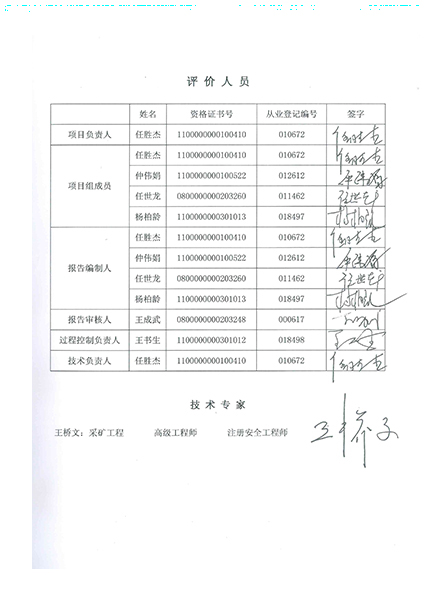 评价人员
姓名 资格证书号 从业登记编号 签字
项目负责人 任胜杰 1100000000100410 010672
项目组成员 任胜杰 1100000000100410 010672
仲伟娟 1100000000100522 012612
任世龙 0800000000203260 011462
杨柏龄 1100000000301013 018497
报告编制人 任胜杰 1100000000100410 010672
仲伟娟 1100000000100522 012612
任世龙 0800000000203260 011462
杨柏龄 1100000000301013 018497
报告审核人 王成武 0800000000203248 000617
过程控制负责人 王书生 1100000000301012 018498
技术负责人 任胜杰 1100000000100410 010672
技术专家
王桥文：采矿工程 高级工程师 注册安全工程师